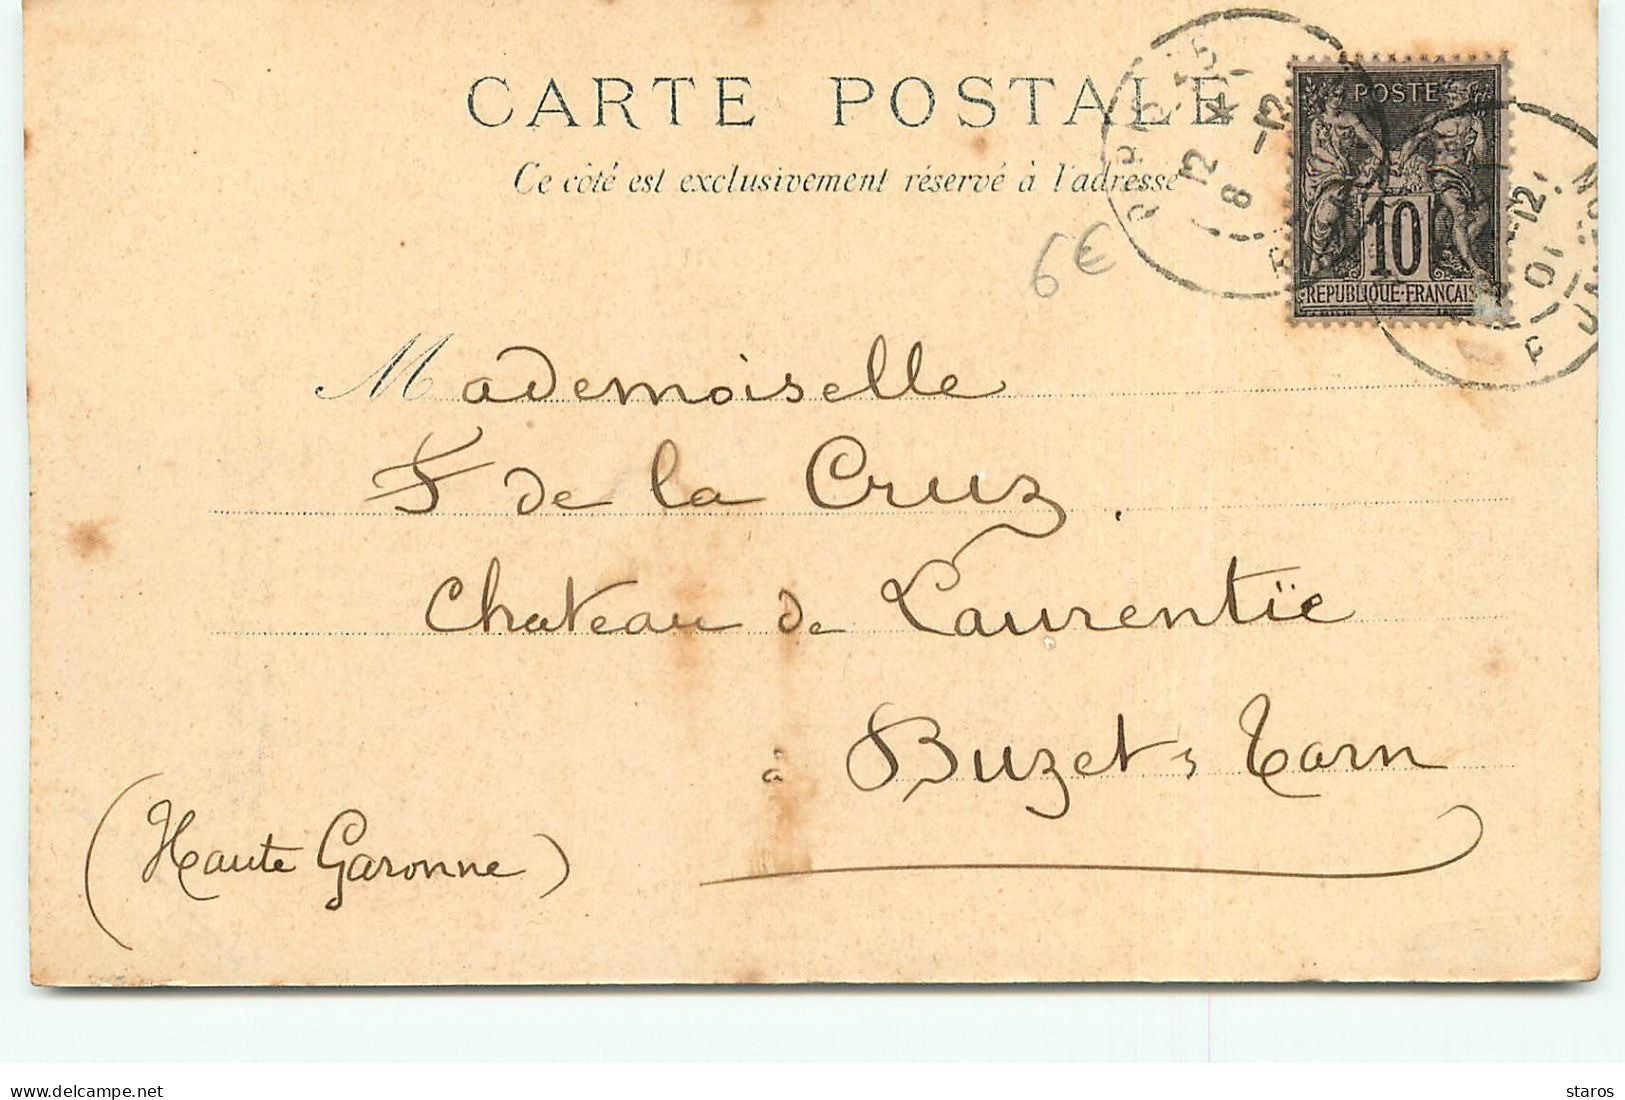 CARTE POSTALE
Ce côté est exclusivement réservé à l'adresse
POSTE
10
REPUBLIQUE·FRANÇAIS
6€
Mademoiselle
F de la Cruz.
Chateau de Laurentïe
à Buzet s Tarn
(Haute Garonne)
www.delcampe.net
staros